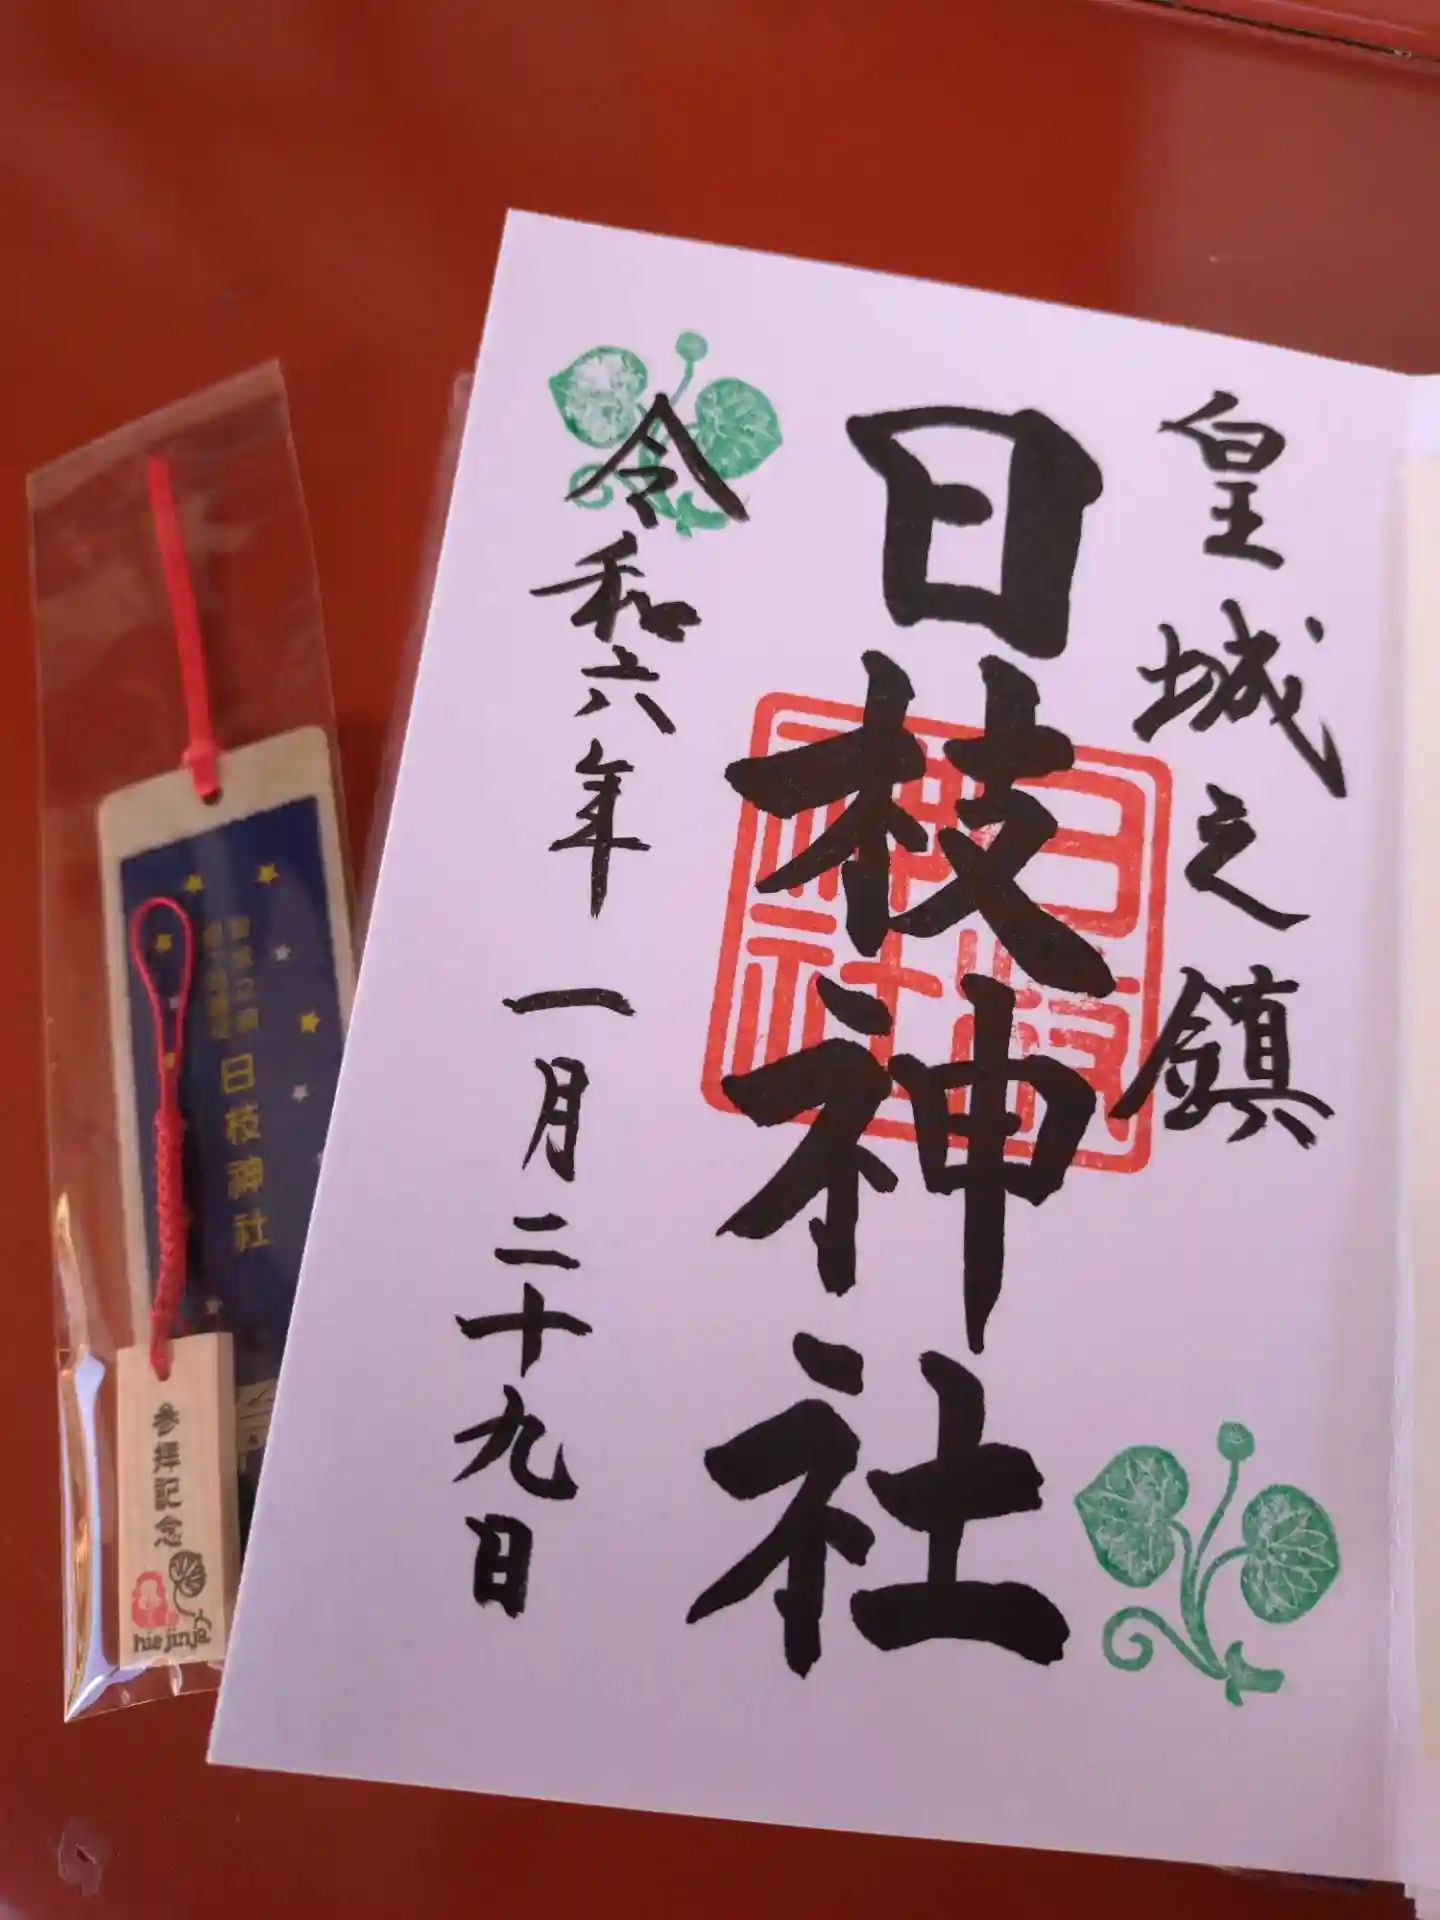 皇城之鎮
日枝神社
令和六年 一月二十九日
日枝神社
日枝神社
参拝記念
hie jinja